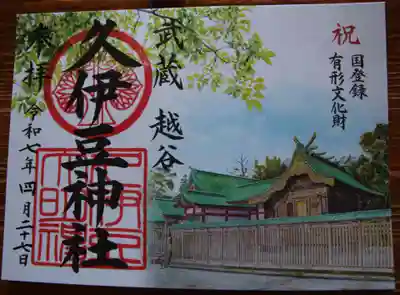 祝
国登録
有形文化財
武蔵 越谷
久伊豆神社
奉拝
令和七年四月二十七日